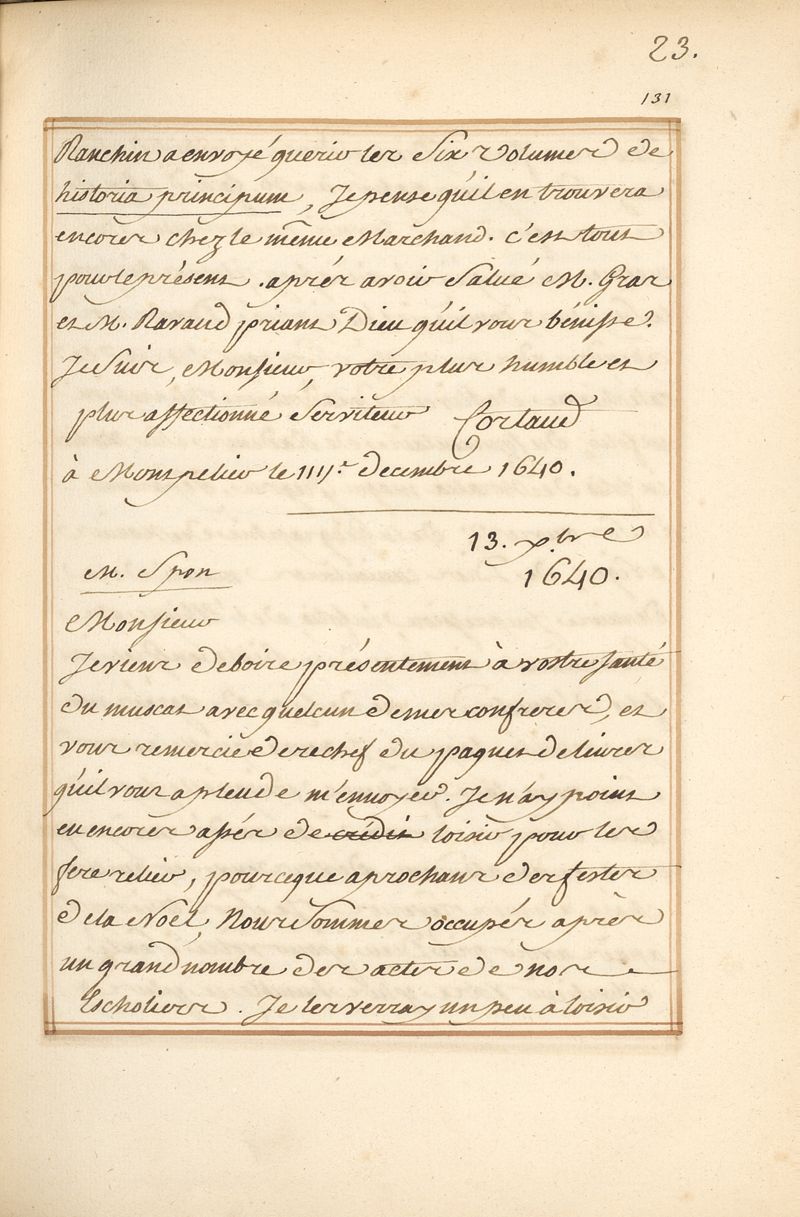 23.
131
Ranchin a envoyé querir les six volumes de
historia principum, Je pense qu'il en trouvera
encores chez le même Marchand. c'est tout
pour le présent. après avoir salué M. Gras
et M. Ravaud priant Dieu qu'il vous bénisse.
Je suis, Monsieur, votre plus humble et
plus affectionné serviteur Cortaud
à Montpelier le 1111.e decembre 1640.
13. x.bre
1640.
M. Spon
Monsieur
Je viens de boire présentement à vostre santé
du muscat avec quelcun de mes confreres, et
vous remercie derechef du paquet de livres
qu'il vous a pleu de m'envoyer. Je n'ay point
eu encores assés de crédit loisir pour les
fere relier, pource que aprochans des festes
de la Noël, Nous sommes occupés après
un grand nombre des actes de nos
Escholiers. Je les verray un peu à loisir